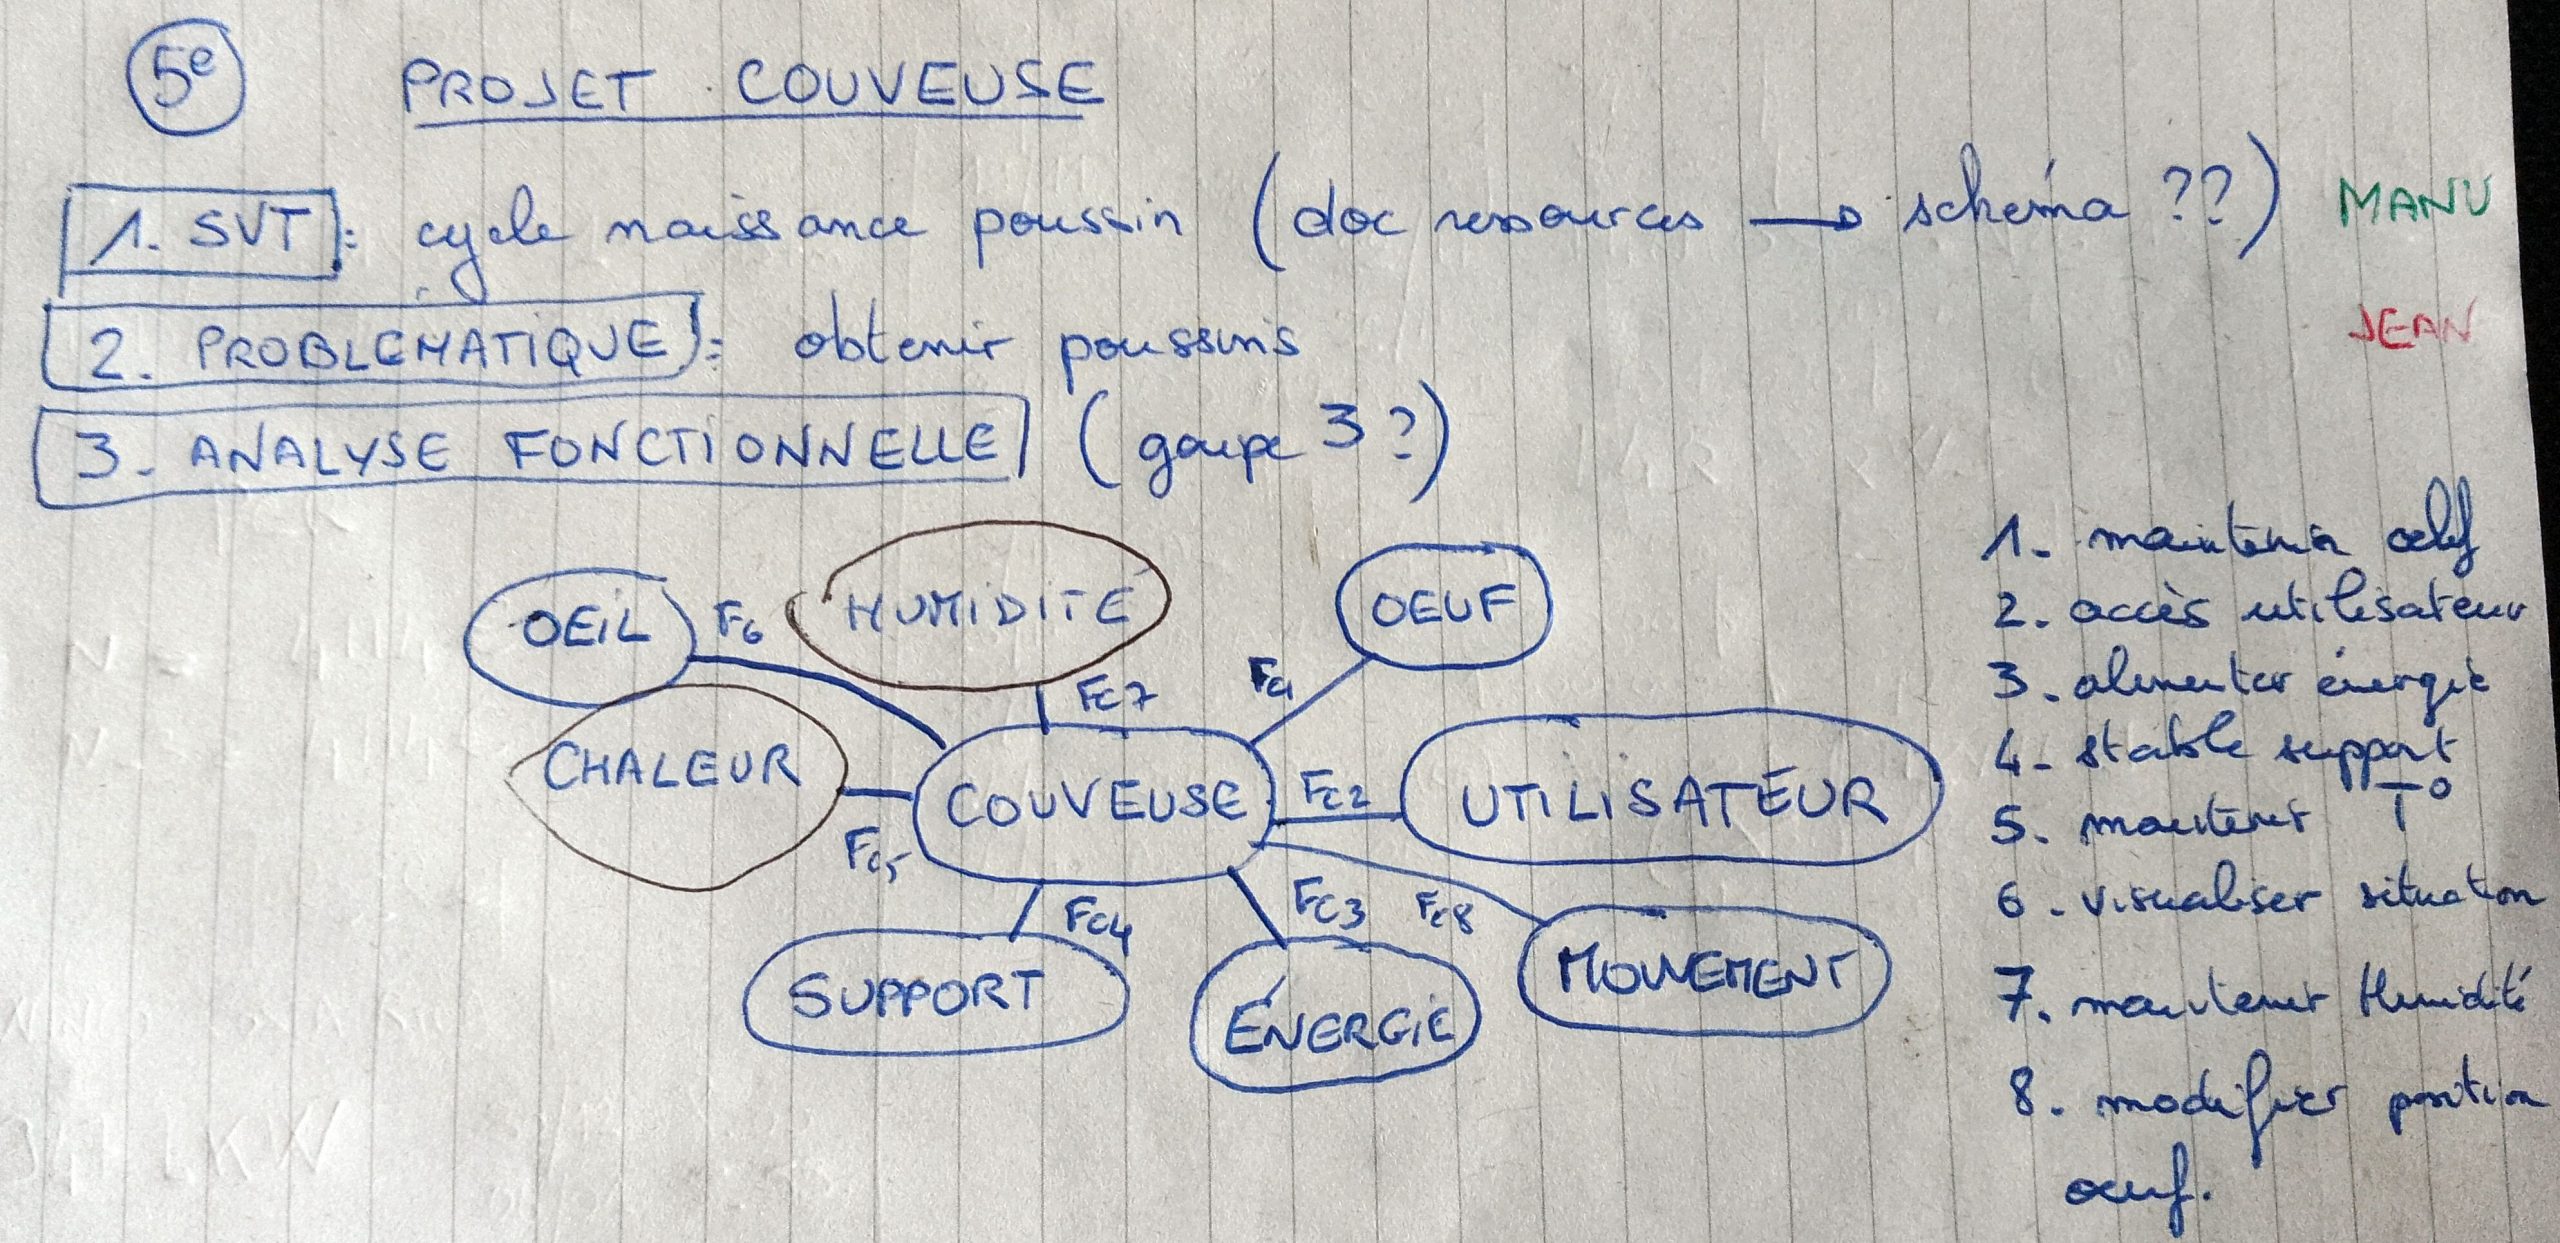 5e PROJET COUVEUSE
1. SVT : cycle naissance poussin (doc ressources → schéma ??) MANU
2. PROBLEMATIQUE : obtenir poussins JEAN
3. ANALYSE FONCTIONNELLE (goupe 3 ?)
OEIL F6 HUMIDITÉ OEUF
FC7 FC1
CHALEUR COUVEUSE FC2 UTILISATEUR
FC5
FC4 FC3 FC8
SUPPORT ÉNERGIE MOUVEMENT
1. maintenir oeuf
2. accès utilisateur
3. alimenter énergie
4. stable support
5. maintenir T°
6. visualiser situation
7. maintenir Humidité
8. modifier position
oeuf.